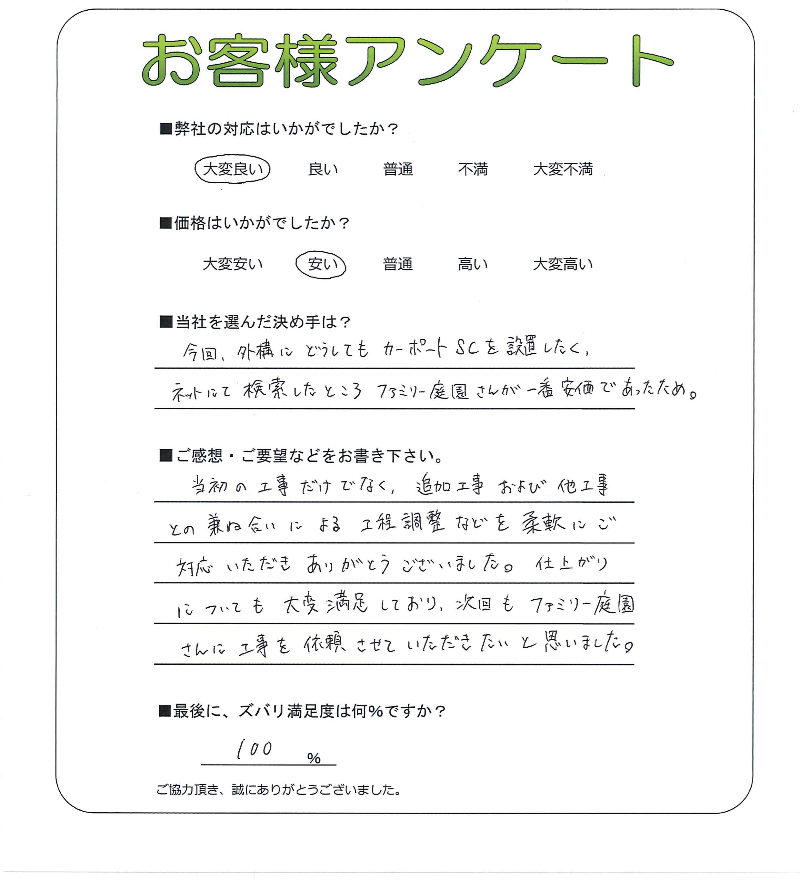 お客様アンケート
■弊社の対応はいかがでしたか？
大変良い 良い 普通 不満 大変不満
■価格はいかがでしたか？
大変安い 安い 普通 高い 大変高い
■当社を選んだ決め手は？
今回、外構にどうしてもカーポートSCを設置したく、
ネットにて検索したところファミリー庭園さんが一番安価であったため。
■ご感想・ご要望などをお書き下さい。
当初の工事だけでなく、追加工事および他工事
との兼ね合いによる工程調整などを柔軟にご
対応いただきありがとうございました。仕上がり
についても大変満足しており、次回もファミリー庭園
さんに工事を依頼させていただきたいと思いました。
■最後に、ズバリ満足度は何％ですか？
100 ％
ご協力頂き、誠にありがとうございました。